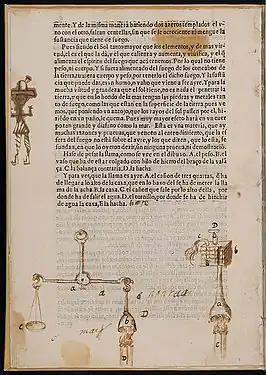 mente. Y de la misma manera hiriendo dos azeros templados el v-
no con el otro, saltan centellas, sin que se le acreciente al mengue la
sustancia que tiene de fuego.
Pues siendo el Sol tanto mayor que los elementos, y de mas vir-
tud, el es el que la dà, y el que calienta y aumenta, y viuifica, y el q̃
alimenta el espiritu del fuego que acà tenemos. Por lo qual no tiene
peso, ni cuerpo. Y si fuera alimentado del fuego de los concabos de
la tierra, tuuiera cuerpo y peso, por tenerlo el dicho fuego. Y la susta
cia que puede dar, es vn humo, no vaho que viene a ser ayre. Y para la
mucha virtud y grandeza que el Sol tiene, no es nada el penetrar la
tierra, y en lo hondo de lla
to de fuego, como las que estan en la superficie de la tierra pues ve-
mos, que poniendo vn antojo, que los rayos del Sol passen por el, hi-
riendo en vn paño, le quema. Pues muy mayor efeto harà en vn cuer
po tan grande y diafano como la mar. Esta es vna materia, que ay
muchas razones y prueuas, que vencen al entendimiento, que la es
fera del fuego, no està sobre el ayre, y los que dizen, que lo està, se
fundan, en que lo oyeron dezir, sin ninguna prueua, ni demostració.
Hase de pesar la llama, como se vee en el dibuxo. A. el peso. B. el
vaso que ha de estar colgado con hilo de hierro del brago de la valã
ça. C. la balança contraria. D. la hacha.
Y para ver, que la llama es ayre. A. el cañon de tres quartas, q̃ ha
de llegar a lo alto de la caxa, que en lo baxo del se ha de meter la lla
ma de la acha. B. la caxa. C. el cañon que sale por lo alto della, por
don ha de salir el agua. D. el tornillo, por donde se ha de hinchir
de agua la caxa. E. la hacha.
D
B
c
a
a
b
c
D
E